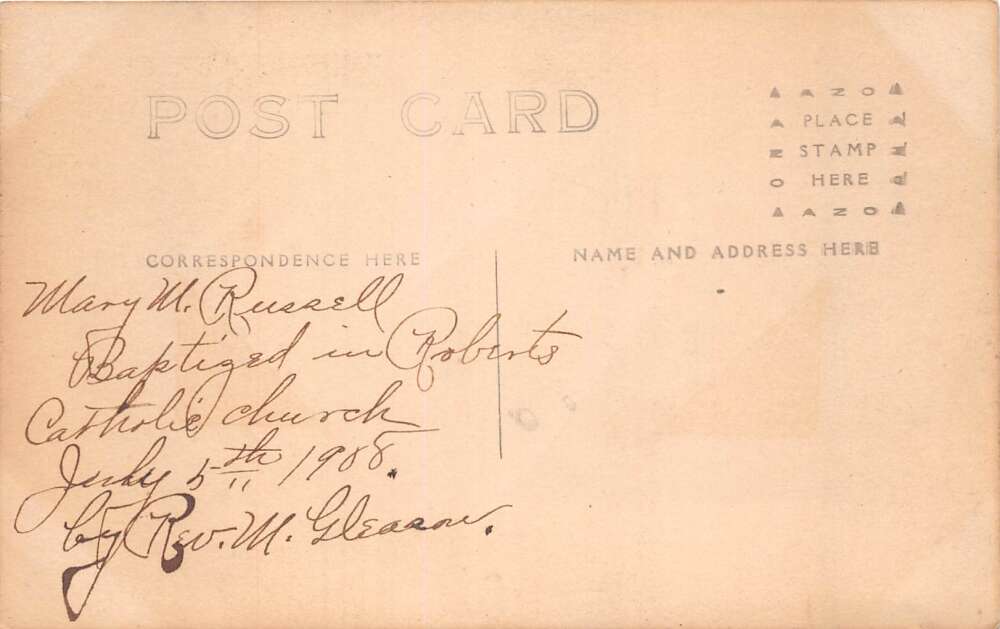 POST CARD
AZO
PLACE
STAMP
HERE
AZO
CORRESPONDENCE HERE
NAME AND ADDRESS HERE
Mary M. Russell
Baptized in Roberts
Catholic church
July 5th 1908.
by Rev. M. Gleason.